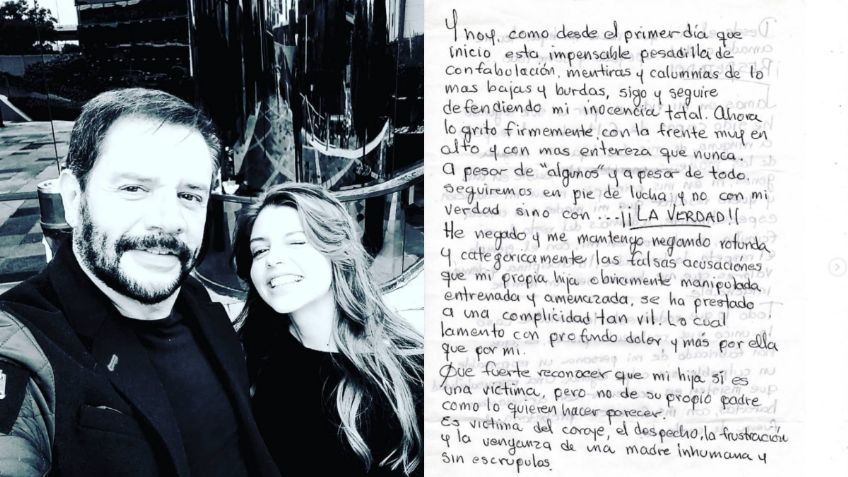 Y hoy, como desde el primer día que
inicio esta impensable pesadilla de
confabolación, mentiras y calumnias de lo
mas bajas y burdas, sigo y seguire
defendiendo mi inocencia total. Ahora
lo grito firmemente, con la frente muy en
alto y con mas entereza que nunca.
a pesar de "algunos" y a pesar de todo,
seguiremos en pie de lucha y no con mi
verdad sino con...¡¡LA VERDAD!!
He negado y me mantengo negando rotunda
y categoricamente las falsas acusaciones
que mi propia hija obviamente manipulada,
entrenada y amenazada, se ha prestado
a una complicidad tan vil. Lo cual
lamento con profundo dolor y más por ella
que por mi.
Que fuerte reconocer que mi hija sí es
una victima, pero no de su propio padre
como lo quieren hacer parecer.
Es victima del coraje, el despecho, la frustración
y la venganza de una madre inhumana y
sin escrupulos.